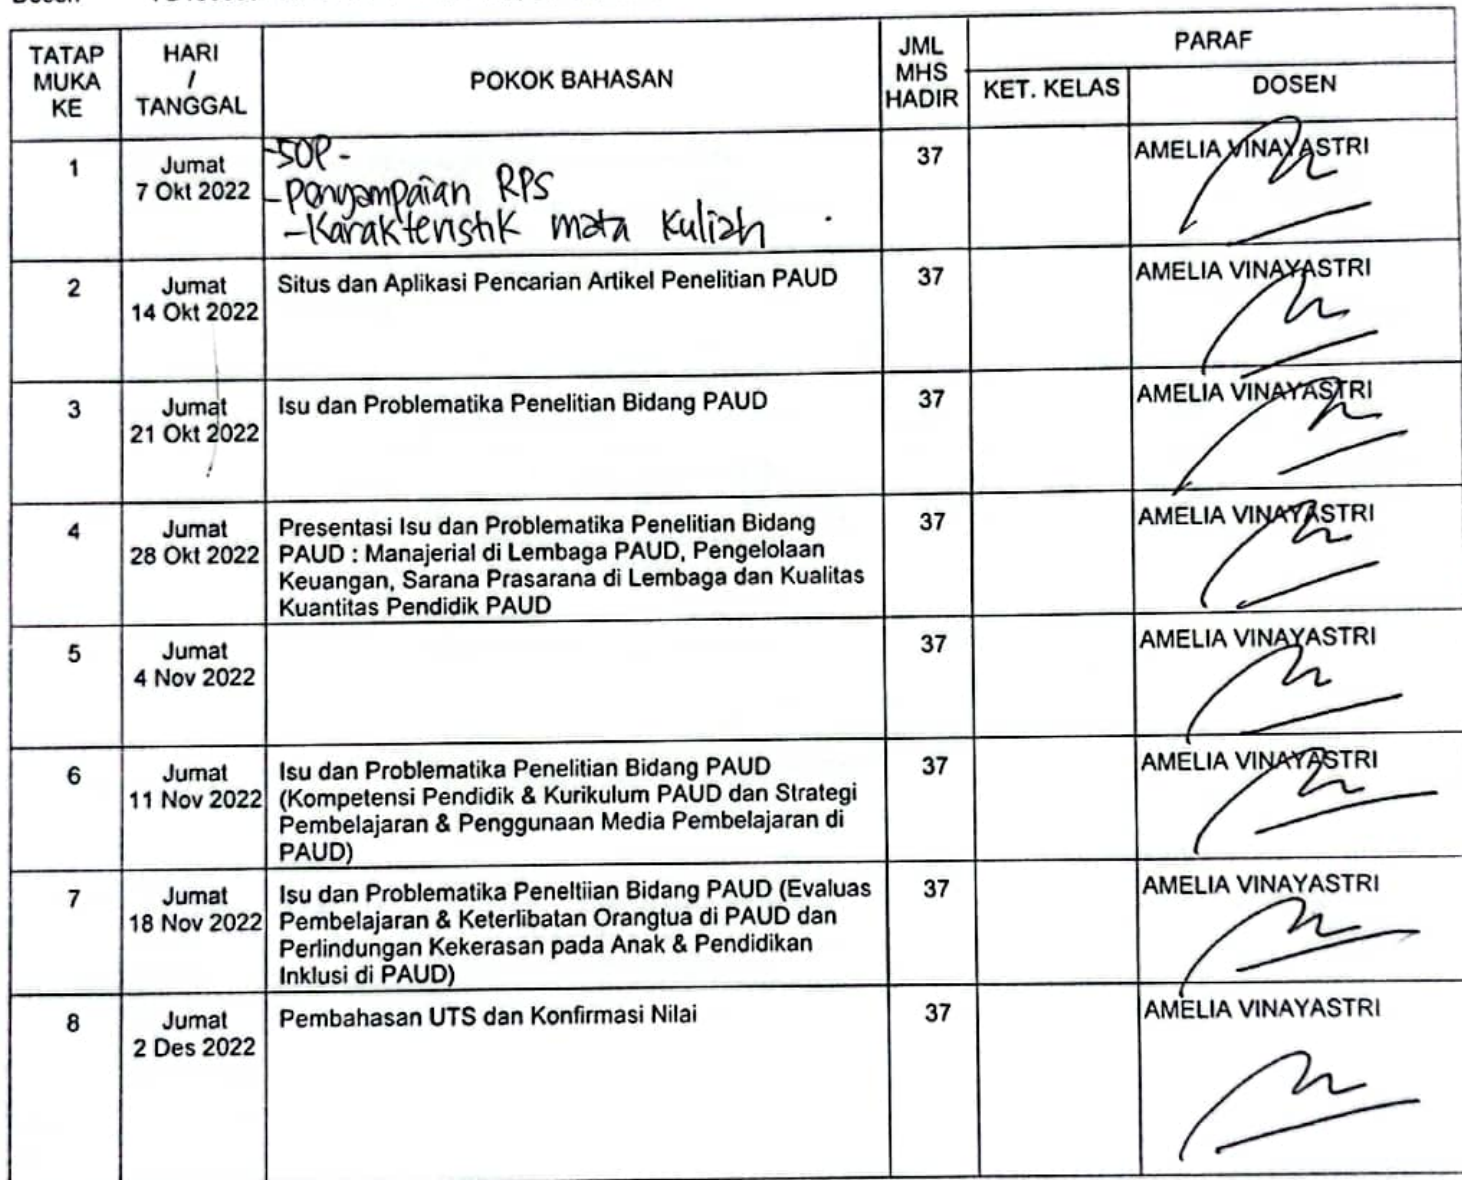 TATAP
MUKA
KE
HARI
/
TANGGAL
POKOK BAHASAN
JML
MHS
HADIR
PARAF
KET. KELAS
DOSEN
1
Jumat
7 Okt 2022
-SOP-
-Penyampaian RPS
-Karakteristik mata kuliah
37
AMELIA VINAYASTRI
2
Jumat
14 Okt 2022
Situs dan Aplikasi Pencarian Artikel Penelitian PAUD
37
AMELIA VINAYASTRI
3
Jumat
21 Okt 2022
Isu dan Problematika Penelitian Bidang PAUD
37
AMELIA VINAYASTRI
4
Jumat
28 Okt 2022
Presentasi Isu dan Problematika Penelitian Bidang
PAUD : Manajerial di Lembaga PAUD, Pengelolaan
Keuangan, Sarana Prasarana di Lembaga dan Kualitas
Kuantitas Pendidik PAUD
37
AMELIA VINAYASTRI
5
Jumat
4 Nov 2022
37
AMELIA VINAYASTRI
6
Jumat
11 Nov 2022
Isu dan Problematika Penelitian Bidang PAUD
(Kompetensi Pendidik & Kurikulum PAUD dan Strategi
Pembelajaran & Penggunaan Media Pembelajaran di
PAUD)
37
AMELIA VINAYASTRI
7
Jumat
18 Nov 2022
Isu dan Problematika Peneltiian Bidang PAUD (Evaluas
Pembelajaran & Keterlibatan Orangtua di PAUD dan
Perlindungan Kekerasan pada Anak & Pendidikan
Inklusi di PAUD)
37
AMELIA VINAYASTRI
8
Jumat
2 Des 2022
Pembahasan UTS dan Konfirmasi Nilai
37
AMELIA VINAYASTRI